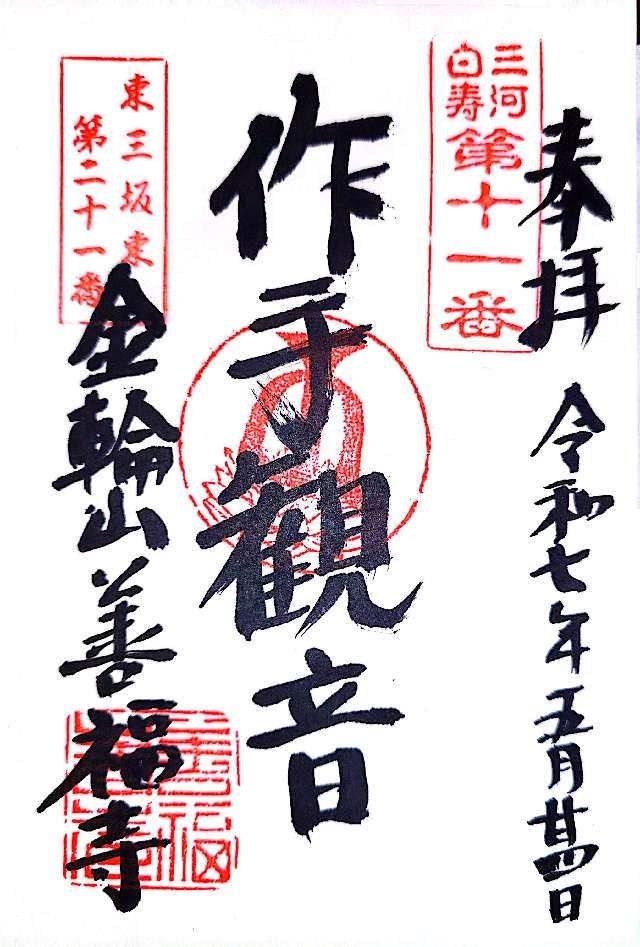 奉拝
令和七年五月廿四日
三河
白寿
第十一番
作手観音
東三坂東
第二十一番
金輪山善福寺